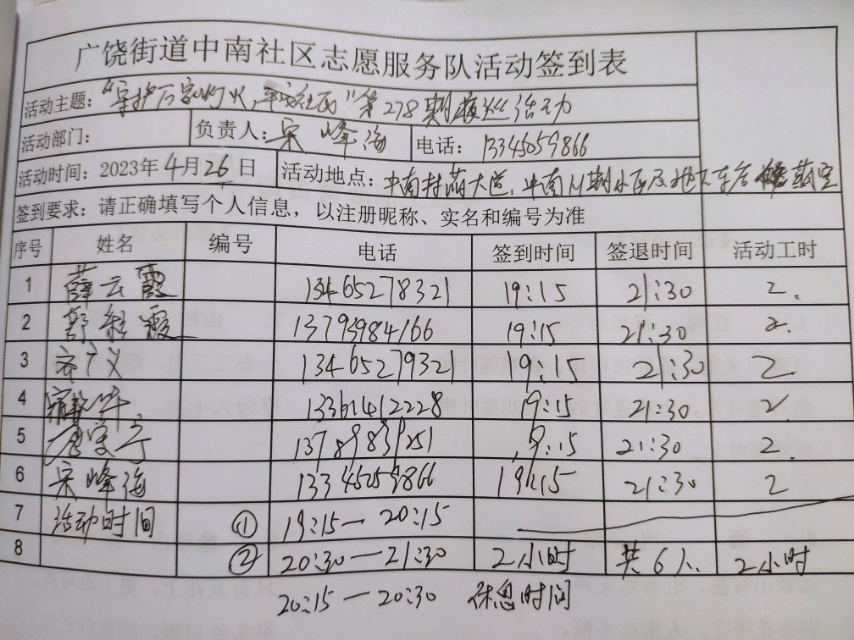 广饶街道中南社区志愿服务队活动签到表
活动主题："守护万家灯火，平安社区"第278期夜巡活动
活动部门： 负责人：宋峰海 电话：13345059866
活动时间：2023年4月26日 活动地点：中南林荫大道、中南 期小区及地下车台
签到要求：请正确填写个人信息，以注册昵称、实名和编号为准
序号 姓名 编号 电话 签到时间 签退时间 活动工时
1 薛云霞 13465278321 19:15 21:30 2.
2 彩霞 13793984166 19:15 21:30 2.
3 义 13465279321 19:15 21:30 2.
4 13361412228 19:15 21:30 2.
5 19:15 21:30 2.
6 宋峰海 13345059866 19:15 21:30 2
7 活动时间 ① 19:15—20:15
8 ② 20:30—21:30 2小时 共6人 2小时
20:15—20:30 休息时间